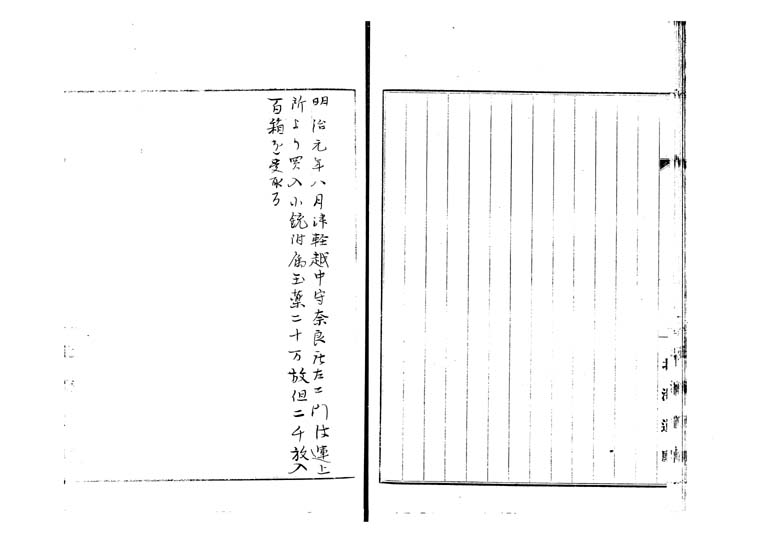 明治元年八月津軽越中守奈良庄左エ門は運上
所より買入小銃附属玉薬二十万放但二千放入
百箱を受取る
北海道